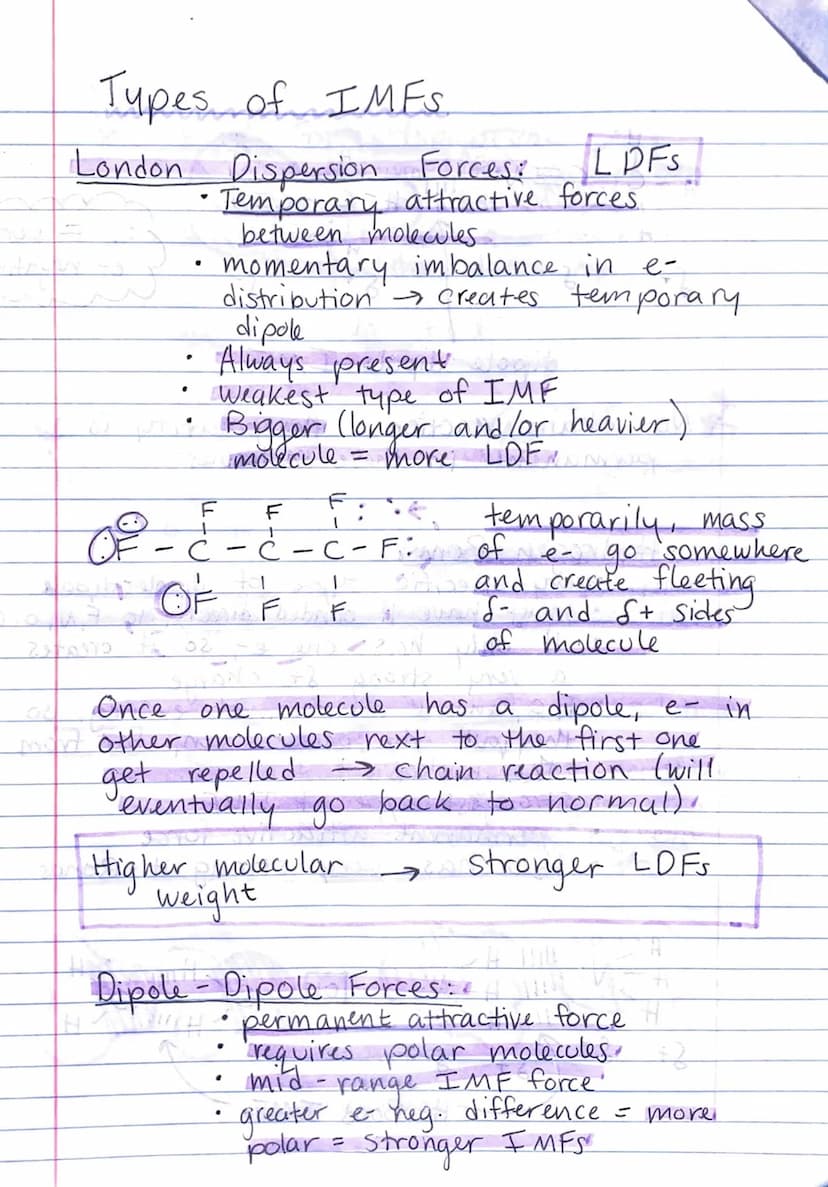 Types of IMFs
London Dispersion Forces: LDFs
• Temporary attractive forces
between molecules
• momentary imbalance in e-
distribution → creates temporary
dipole
• Always present
• weakest type of IMF
• Bigger (longer and/or heavier)
molecule = more LDF
F F F :
F - C - C - C - F :
F F F
temporarily, mass
of e- go somewhere
and create fleeting
δ- and δ+ sides
of molecule
Once one molecule has a dipole, e- in
other molecules next to the first one
get repelled → chain reaction (will
eventually go back to normal)
Higher molecular → Stronger LDFs
weight
Dipole - Dipole Forces:
• permanent attractive force
• requires polar molecules
• mid-range IMF force
• greater e- neg. difference = more
polar = stronger IMFs